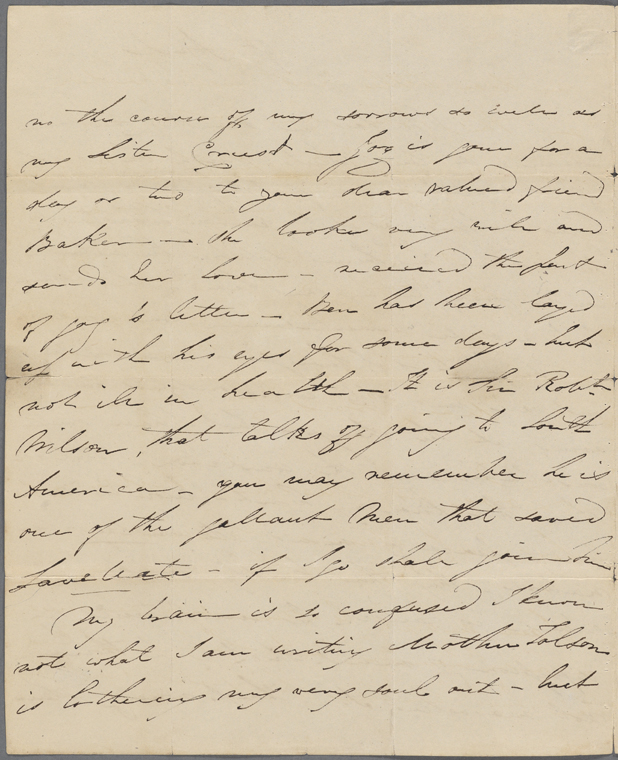 in the course of my sorrows as well as
my Sister Ernest — Joy is gone for a
day or two to your dear valued friend
Baker — she looks very well and
sends her love — received the first
of Joy's letter — Ben has been layed
up with his eyes for some days — but
not ill in health — It is Sir Robt
Wilson, that talks of going to South
America — you may remember he is
one of the gallant Men that saved
Lavellate — if I go shall join him
My brain is so confused I know
not what I am writing Mother Tolson
is bothering my very soul out — but